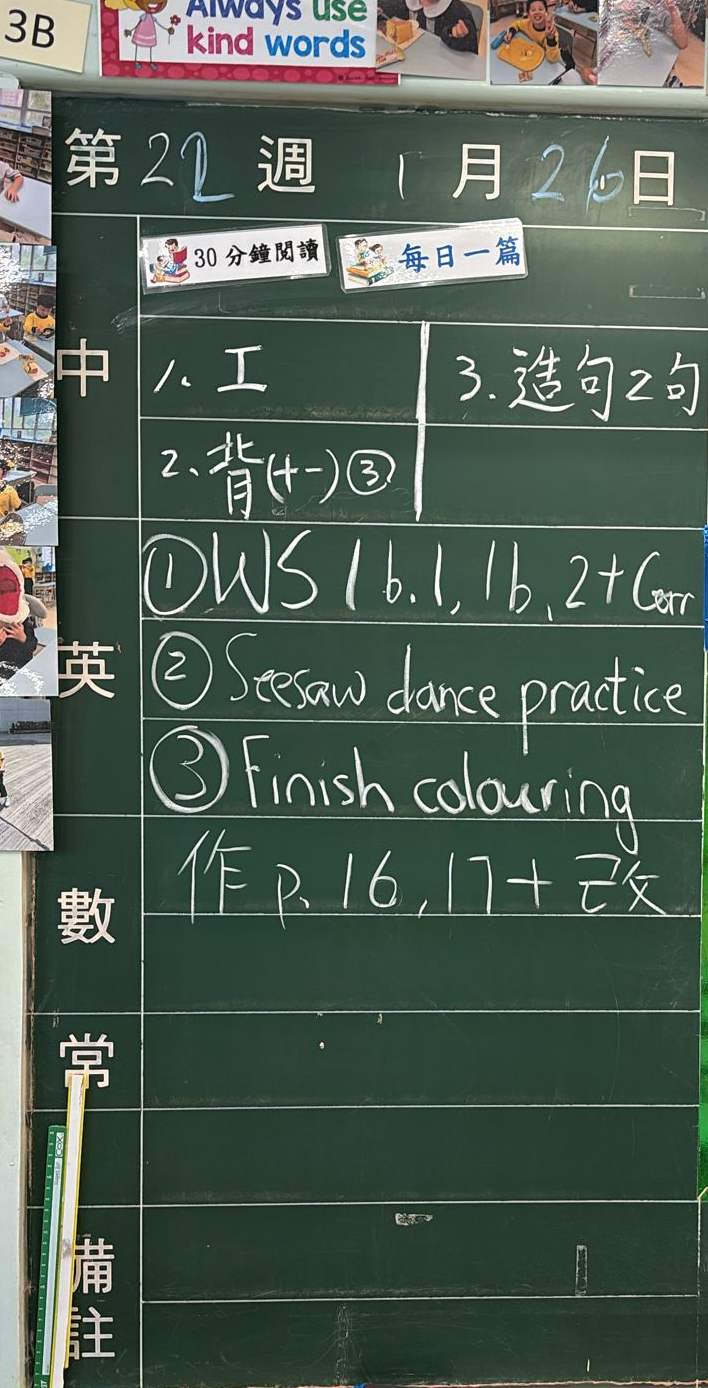 3B
Always use
kind words
第 22 週 1 月 26 日
30分鐘閱讀 每日一篇
中
1. 工
3. 造句2句
2. 背(十一)③
英
①WS 16.1, 16.2+Corr
②Seesaw dance practice
③Finish colouring
數
作 p. 16, 17+改
常
備註